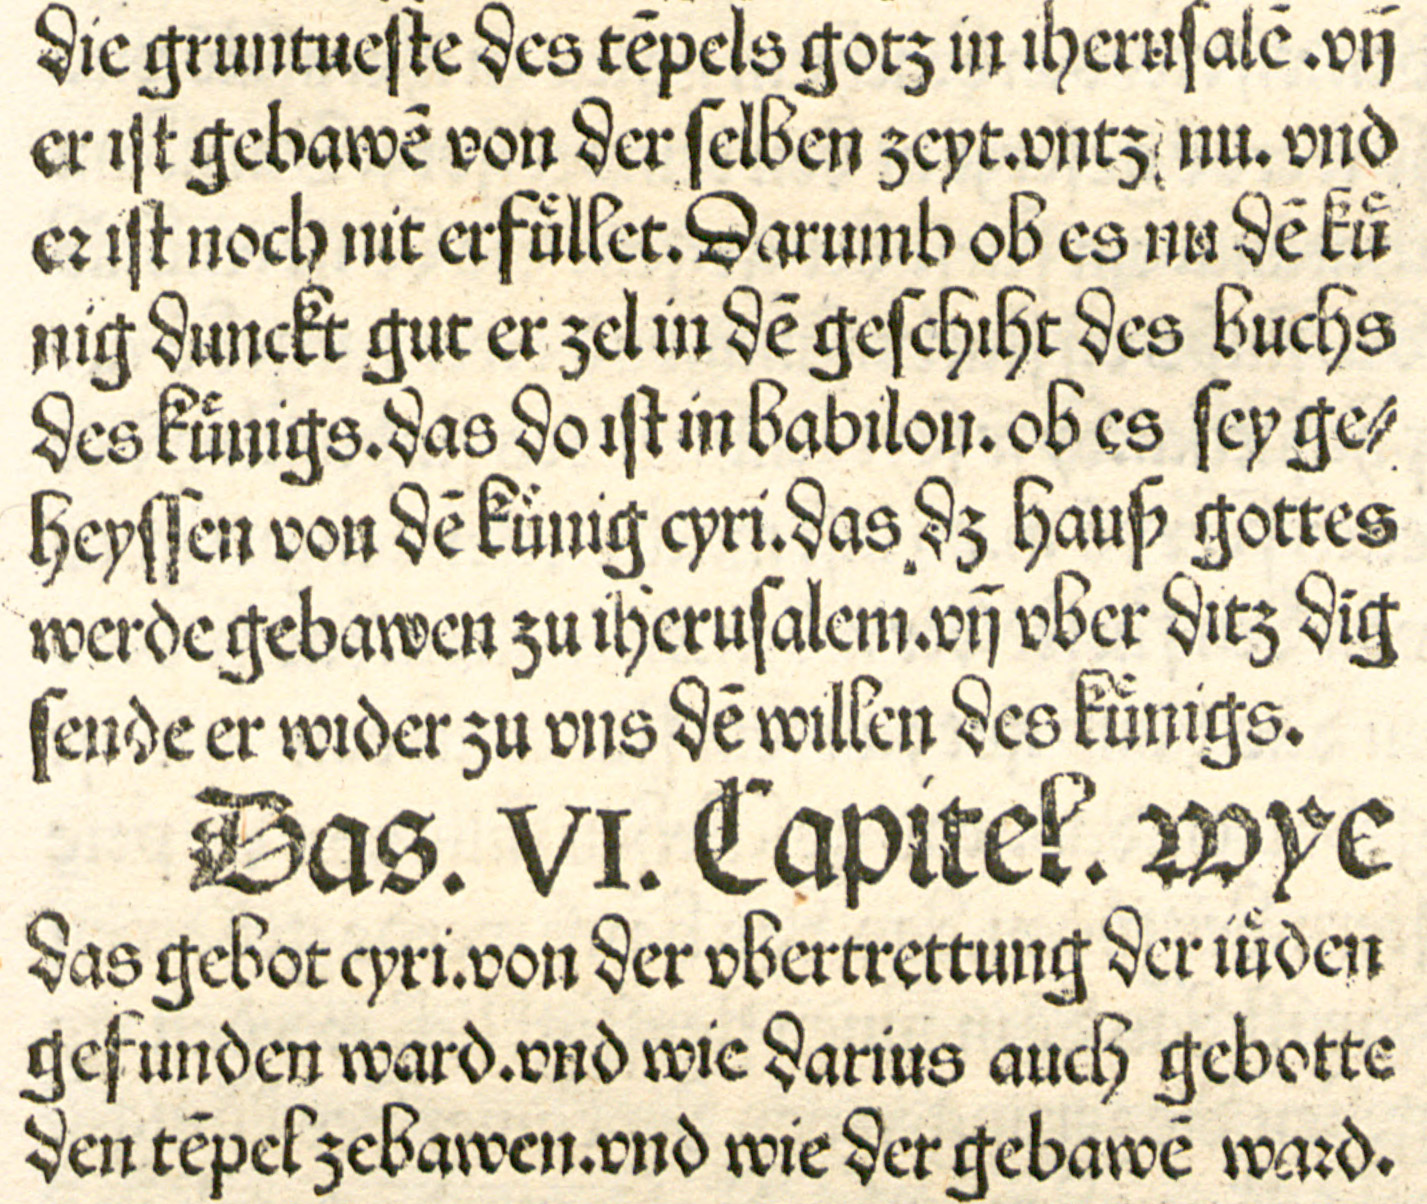 die gruntueſte des tēpels gotz in iheruſalē .vñ
er iſt gebawē von der ſelben zeyt.vntz nu. vnd
er iſt noch nit erfuͤllet. Darumb ob es nu dē kuͤ
nig dunckt gut er zel in dē geſchiht des buchs
des kuͤnigs.das do iſt in babilon. ob es ſey ge⸗
heyſſen von dē kuͤnig cyri.das dz hauß gottes
werde gebawen zu iheruſalem.vñ vber ditz dig
ſende er wider zu vns dē willen des kuͤnigs.
Das. VI. Capitel. wye
das gebot cyri.von der vbertrettung der iuͤden
gefunden ward.vnd wie darius auch gebotte
den tēpel zebawen.vnd wie der gebawē ward.